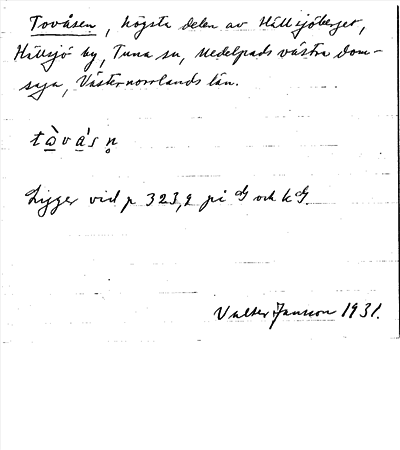 Tovåsen, högsta delen av Hällsjöberget,
Hällsjö by, Tuna sn, Medelpads västra dom-
saga, Västernorrlands län.
tòvásn̥
Ligger vid p 323,2 på och k
Valter Jansson 1931.